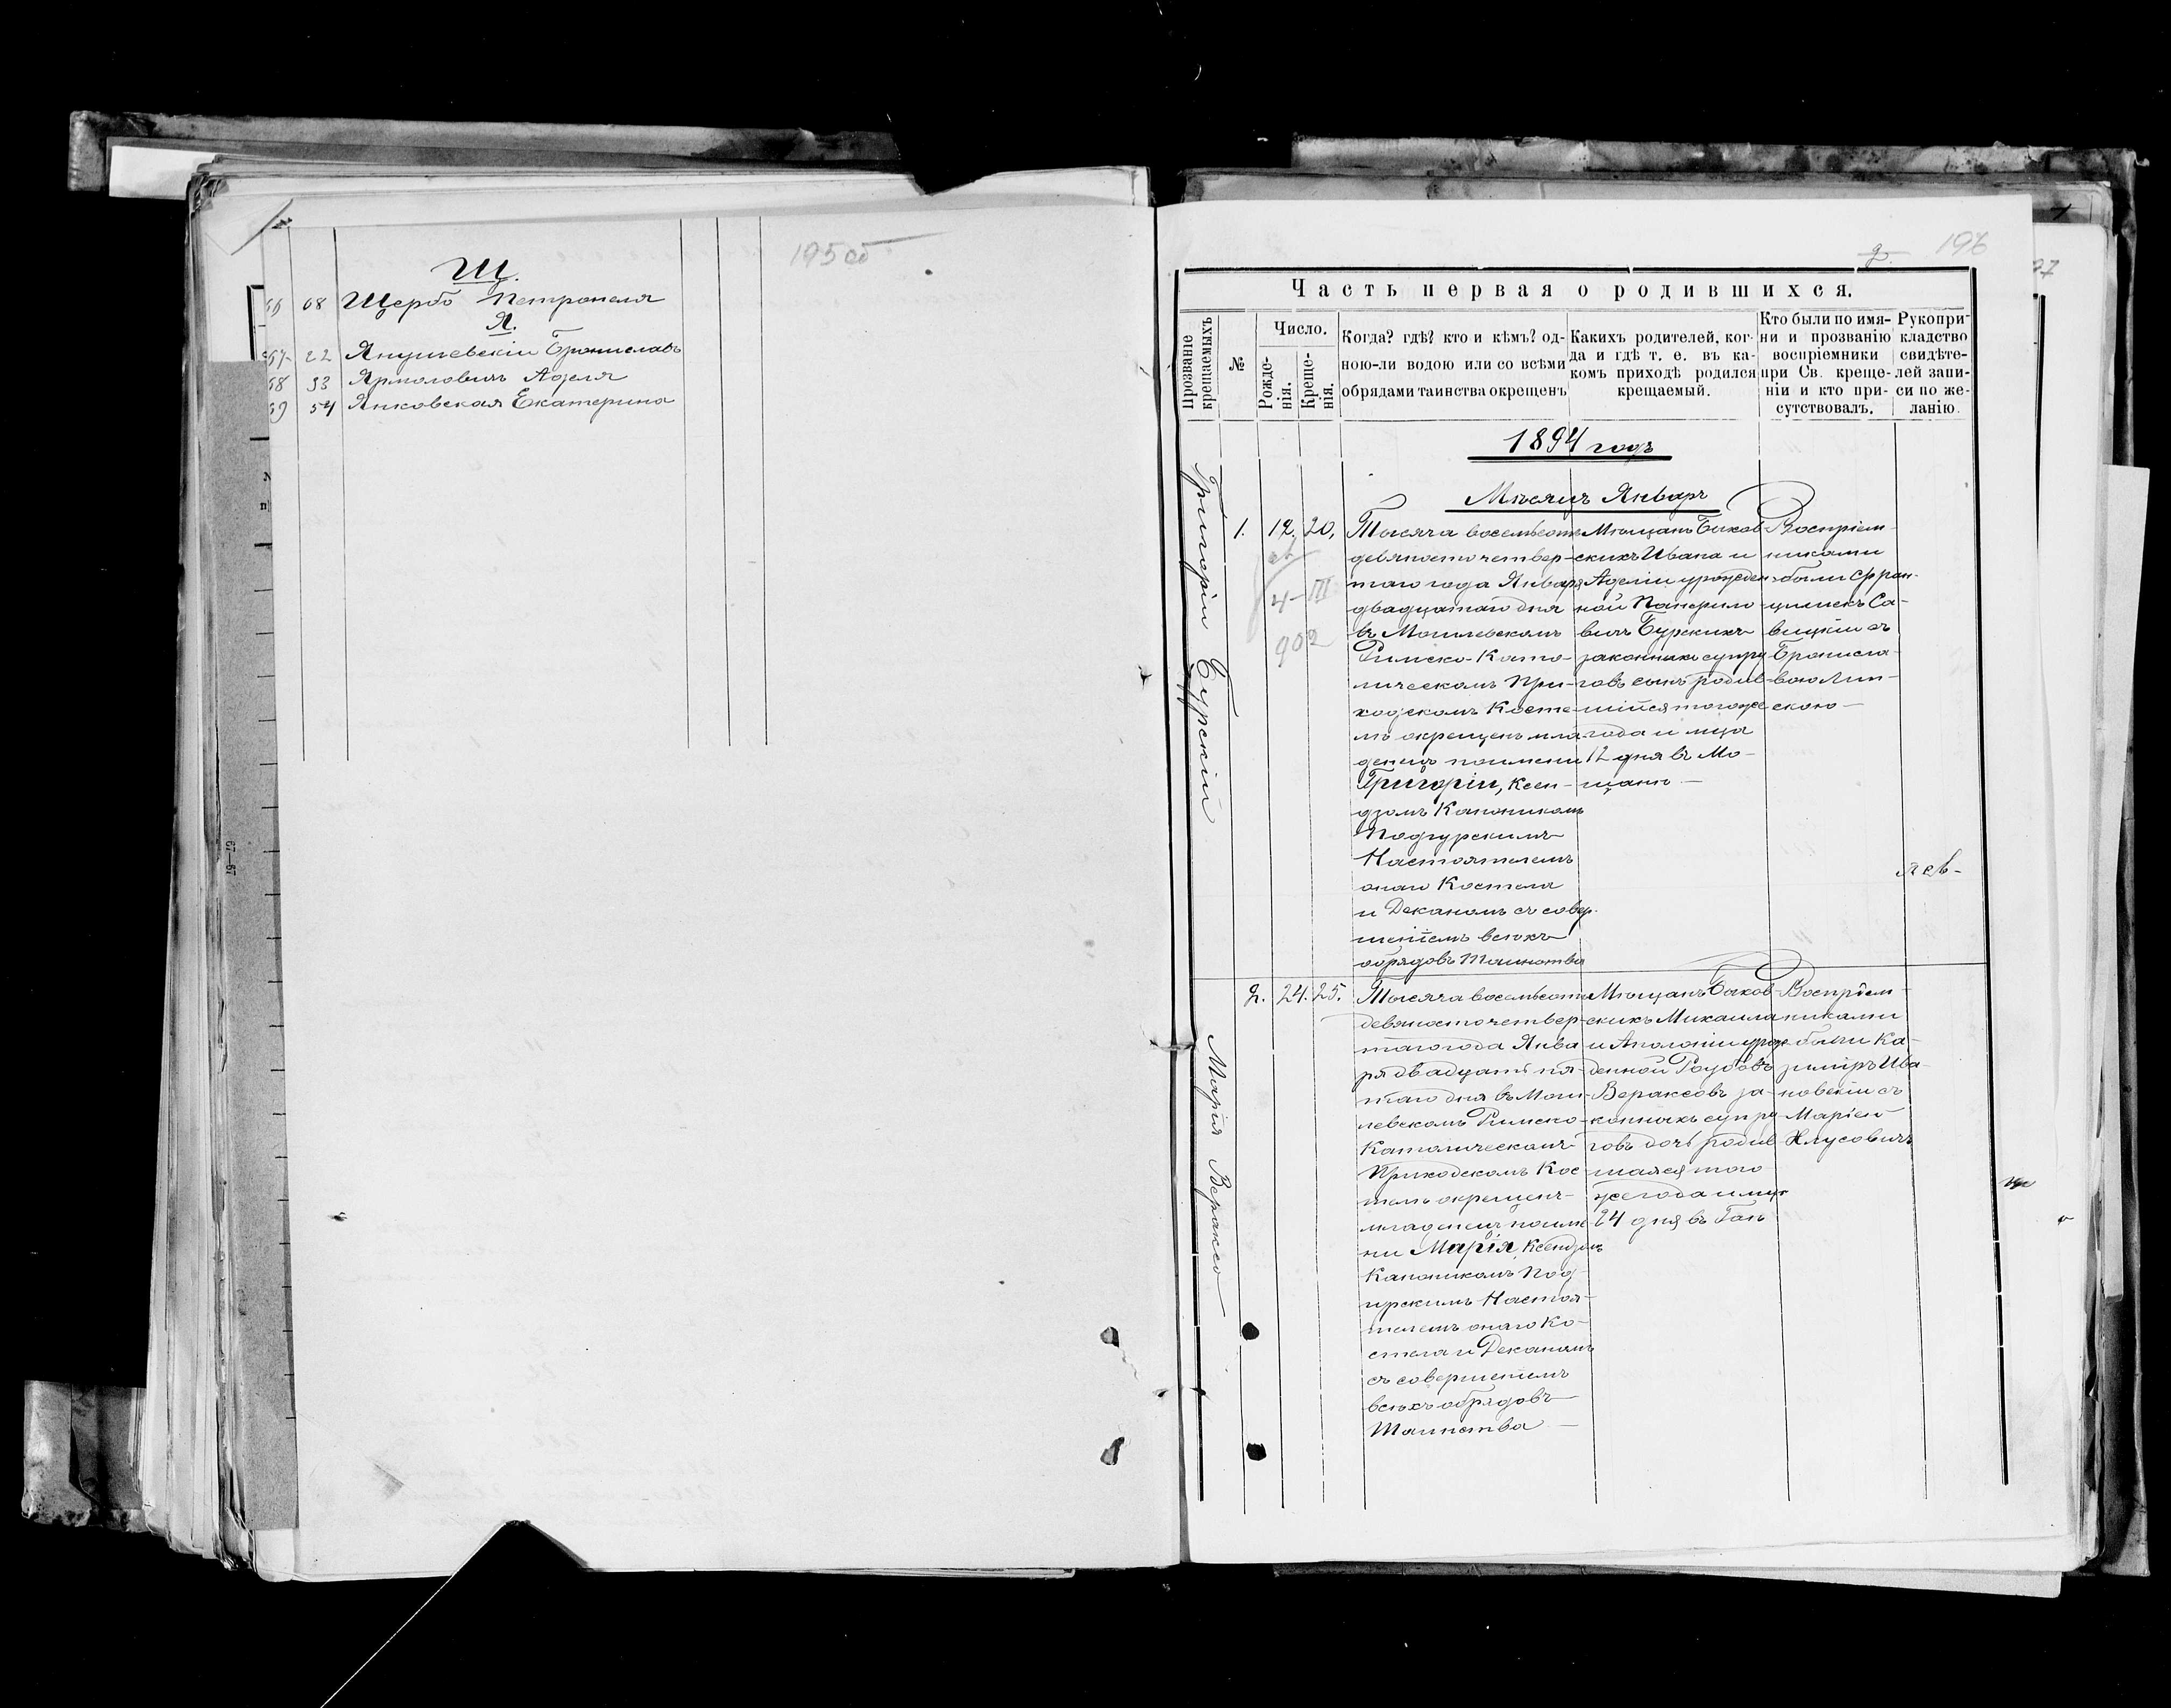 195 об
Щ.
66 68 Щербо Петронеля
Я.
67 22 Янушевскій Брониславъ
68 33 Ярмоловичъ Аделя
69 54 Янковская Екатерина
67—67
2. 196
Часть первая о родившихся.
Прозваніе крещаемыхъ
№
Число.
Рожде-
нія.
Креще-
нія.
Когда? гдѣ? кто и кѣмъ? од-
ною-ли водою или со всѣми
обрядами таинства окрещенъ
Какихъ родителей, ког-
да и гдѣ т. е. въ ка-
комъ приходѣ родился
крещаемый.
Кто были по имя-
ни и прозванію
воспріемники
при Св. креще-
ніи и кто при-
сутствовалъ.
Рукопри-
кладство
свидѣте-
лей запи-
си по же-
ланію.
1894 годъ
Мѣсяцъ Январь
Григорій Бурскій
1. 12. 20,
св
4— III
902
Тысяча восемьсотъ
девяносто четвер-
таго года Января
двадцатаго дня
въ Могилевскомъ
Римско-Като-
лическомъ При-
ходскомъ Косте-
лѣ окрещенъ мла-
денецъ поимени
Григорій, Ксен-
дзомъ Каноникомъ
Подгурскимъ
Настоятелемъ
онаго Костела
и Деканомъ съ совер-
шеніемъ всѣхъ
обрядовъ Таинства
Мѣщанъ Быхов-
скихъ Ивана и
Аделіи урожден-
ной
вичъ Бурскихъ
законныхъ супру-
говъ сынъ родив-
шійся тогоже
года и мѣсца
12 дня въ Мо-
Воспріем-
никами
были Фран-
цишекъ Са-
вицкій съ
Бронисла-
вою Лип-
скою—
Марія Вераксо
2. 24. 25.
Тысяча восемьсотъ
девяносто четвер-
таго года Янва-
ря двадцать пя-
таго дня въ Моги-
левскомъ Римско-
Католическомъ
Приходскомъ Кос-
телѣ окрещенъ
младенецъ поиме-
ни Марія, Ксендзомъ
Каноникомъ Под-
гурскимъ Настоя-
телемъ онаго Ко-
стела и Деканомъ
съ совершеніемъ
всѣхъ обрядовъ
Таинства —
Мѣщанъ Быхов-
скихъ Михаила
и Аполоніи урож-
денной
Вераксовъ за-
конныхъ супру-
говъ дочь родив-
шаяся того
же года и мѣсца
24 дня въ
Воспріем-
никами
были Ка-
зиміръ Ива-
новскій съ
Маріею